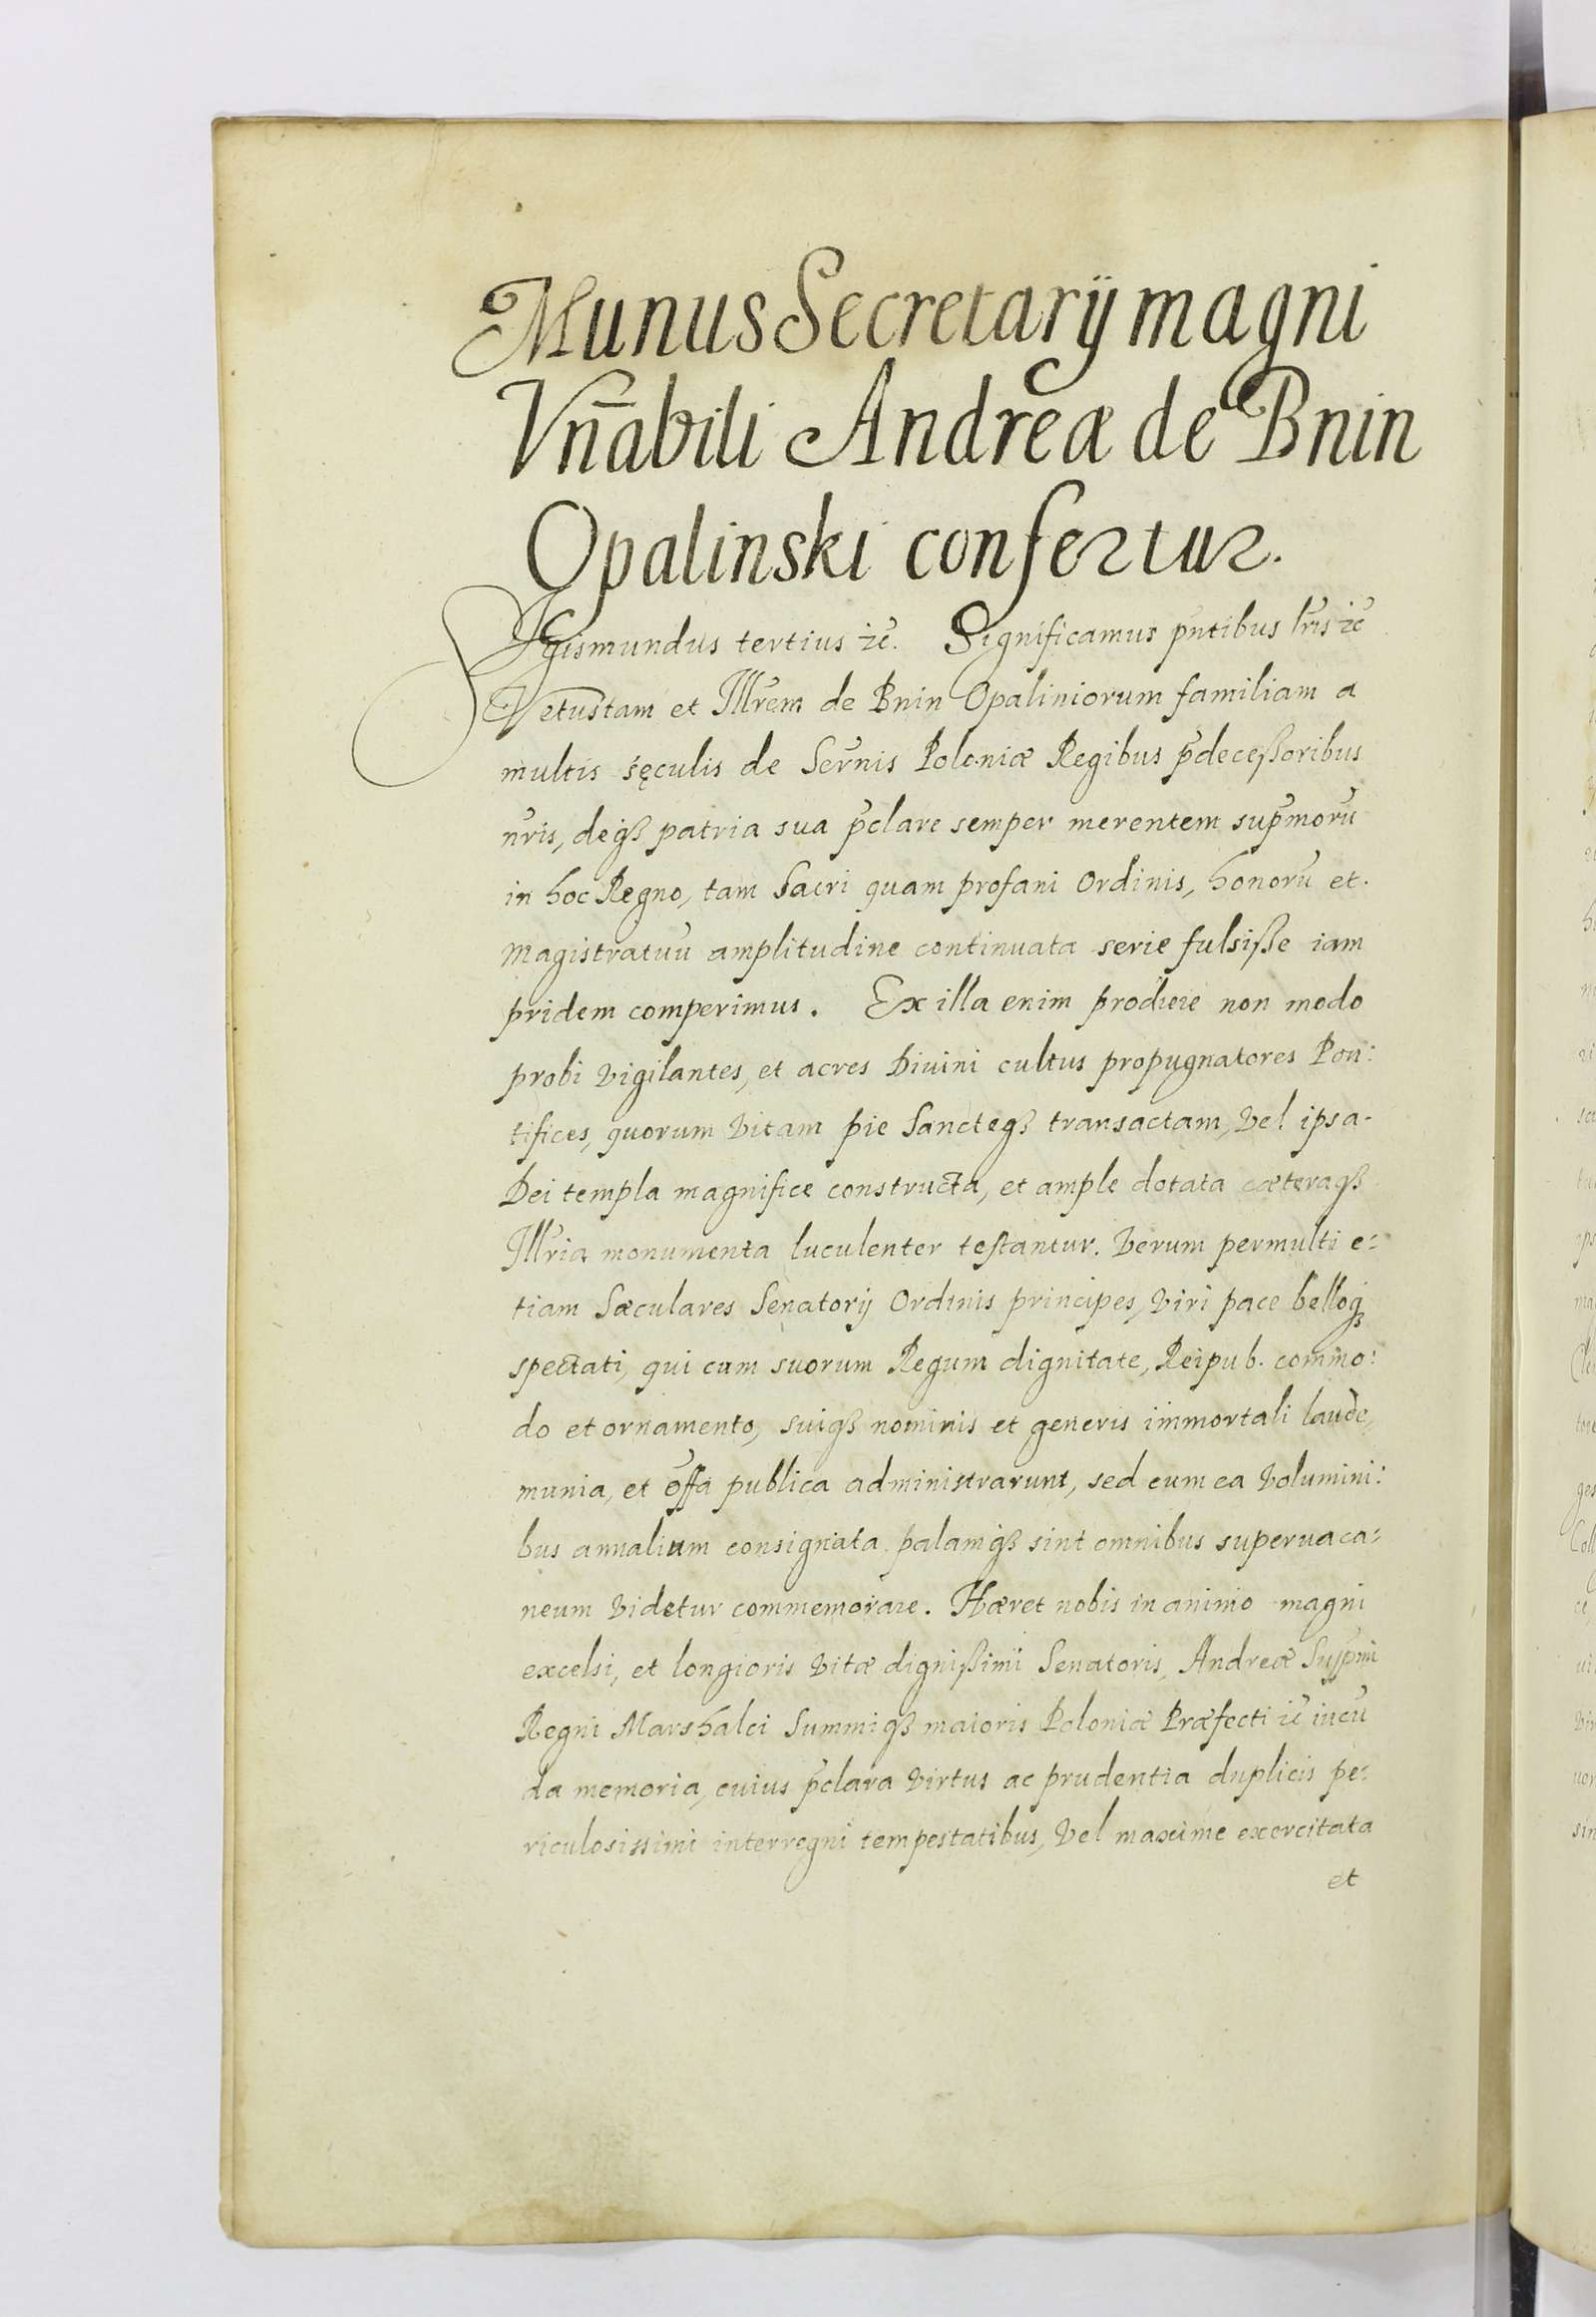 Munus Secretarij magni
Vn̄abili Andreæ de Bnin
Opalinski confertur.
Sigismundus tertius ꝛc̄. Significamus pn̄tibus lr̄is ꝛc̄
Vetustam et Illr̄em de Bnin Opaliniorum familiam a
multis sęculis de Sern̄is Poloniæ Regibus p̄deceßoribus
nr̄is, deqꝫ patria sua p̄clare semper merentem sup̄morū
in hoc Regno, tam Sacri quam profani Ordinis, honorū et
Magistratuū amplitudine continuata serie fulsiße iam
pridem comperimus. Ex illa enim prodiere non modo
probi vigilantes, et acres Diuini cultus propugnatores Pon:
tifices, quorum vitam pie Sancteqꝫ transactam, vel ipsa
Dei templa magnifice constructa, et ample dotata cæteraqꝫ
Illr̄ia monumenta luculenter testantur. Verum permulti e:
tiam Sæculares Senatorij Ordinis principes, viri pace belloqꝫ
spectati, qui cum suorum Regum dignitate, Reipub. commo:
do et ornamento, suiqꝫ nominis et generis immortali laude,
munia, et offā publica administrarunt, sed cum ea volumini:
bus annalium consignata palamqꝫ sint omnibus superuaca:
neum videtur commemorare. Hæret nobis in animo magni
excelsi, et longioris vitæ dignißimi Senatoris, Andreæ Sup̄mi
Regni Marshalci Summiqꝫ maioris Poloniæ Præfecti ꝛc̄ iucū
da memoria, cuius p̄clara virtus ac prudentia duplicis pe:
riculosissimi interregni tempestatibus, vel maxime exercitata
et